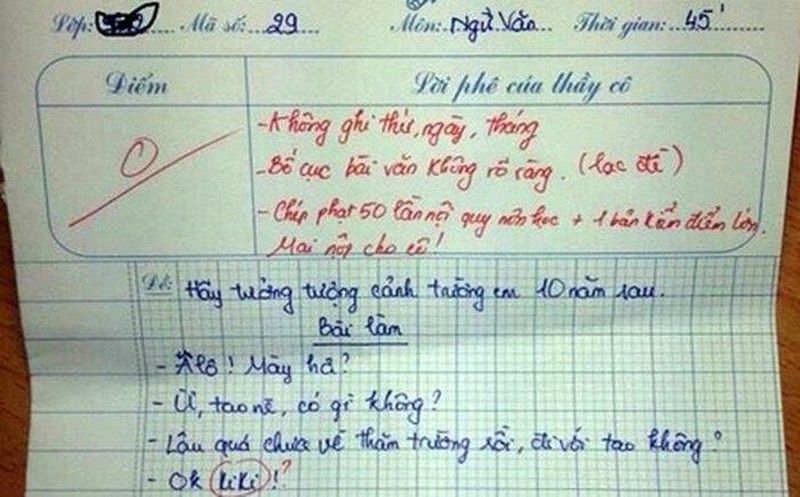 Lớp: Mã số: 29 Môn: Ngữ Văn Thời gian: 45'
Điểm
Lời phê của thầy cô
0
- Không ghi thứ, ngày, tháng
- Bố cục bài văn không rõ ràng. (lạc đề)
- Chép phạt 50 lần nội quy môn học + 1 bản kiểm điểm lớn.
Mai nộp cho cô!
Đề: Hãy tưởng tượng cảnh trường em 10 năm sau.
Bài làm
- Alô! Mày hả?
- Ừ, tao nè, có gì không?
- Lâu quá chưa về thăm trường rồi, đi với tao không?
- Ok kiki!?